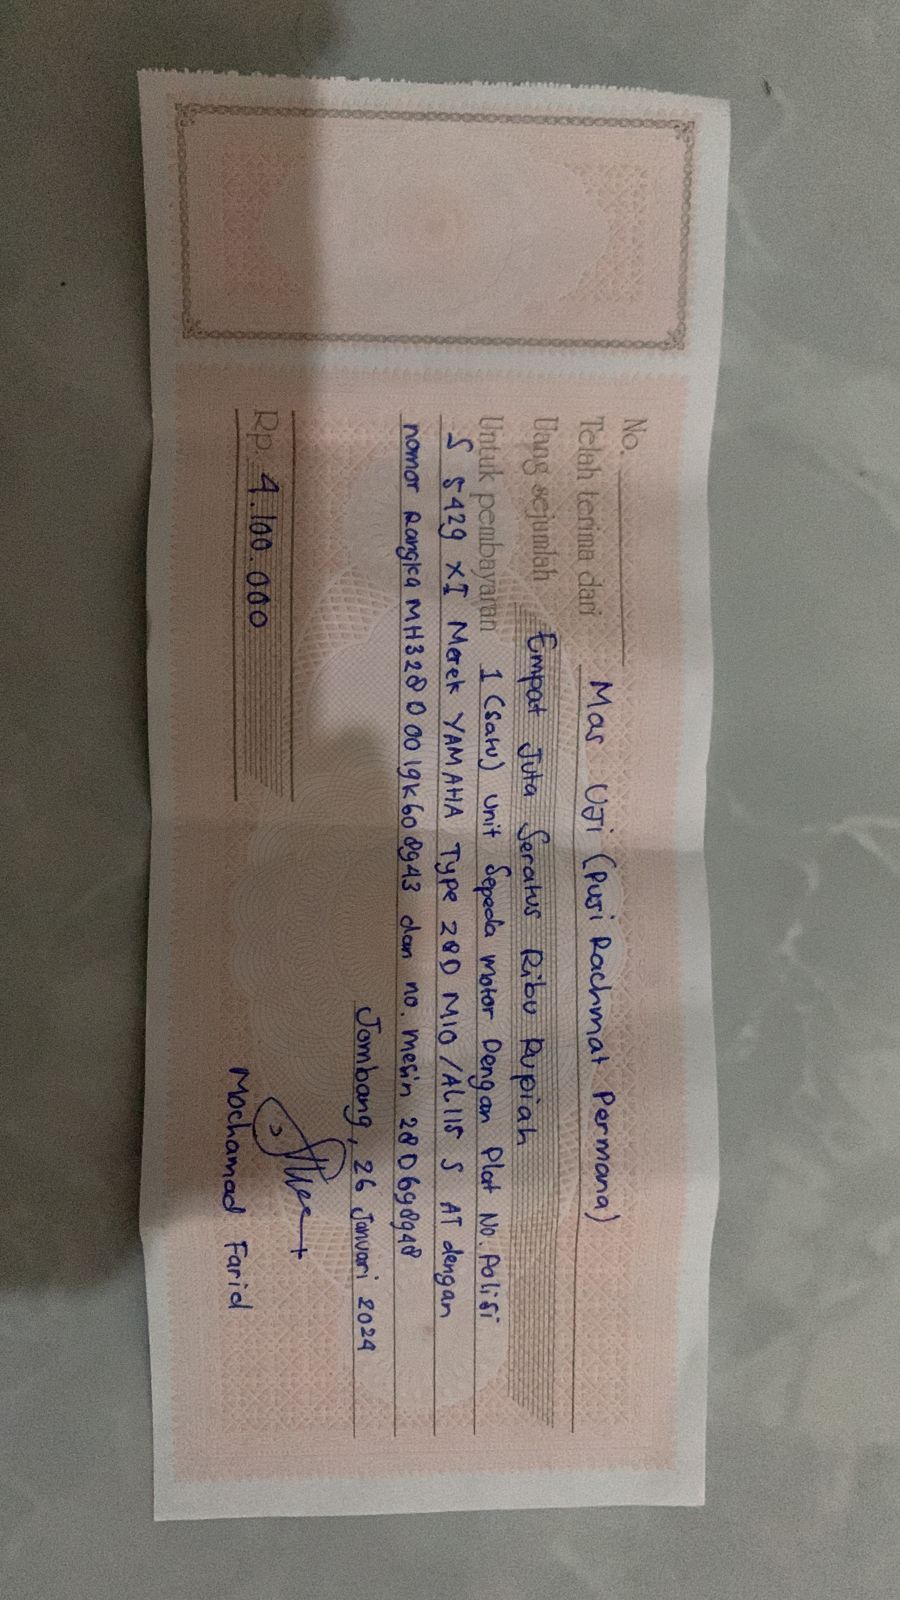 No.
Telah terima dari Mas UJi (Puji Rachmat Permana)
Uang sejumlah Empat Juta Seratus Ribu Rupiah
Untuk pembayaran 1 (satu) unit Sepeda motor Dengan Plat No. Polisi
S 5429 XI Merek YAMAHA Type 28D MIO / AL115 S AT dengan
nomor Rangka MH328D0019K608943 dan no. mesin 28D698948
Jombang, 26 Januari 2024
Rp. 4.100.000
Mochamad Farid